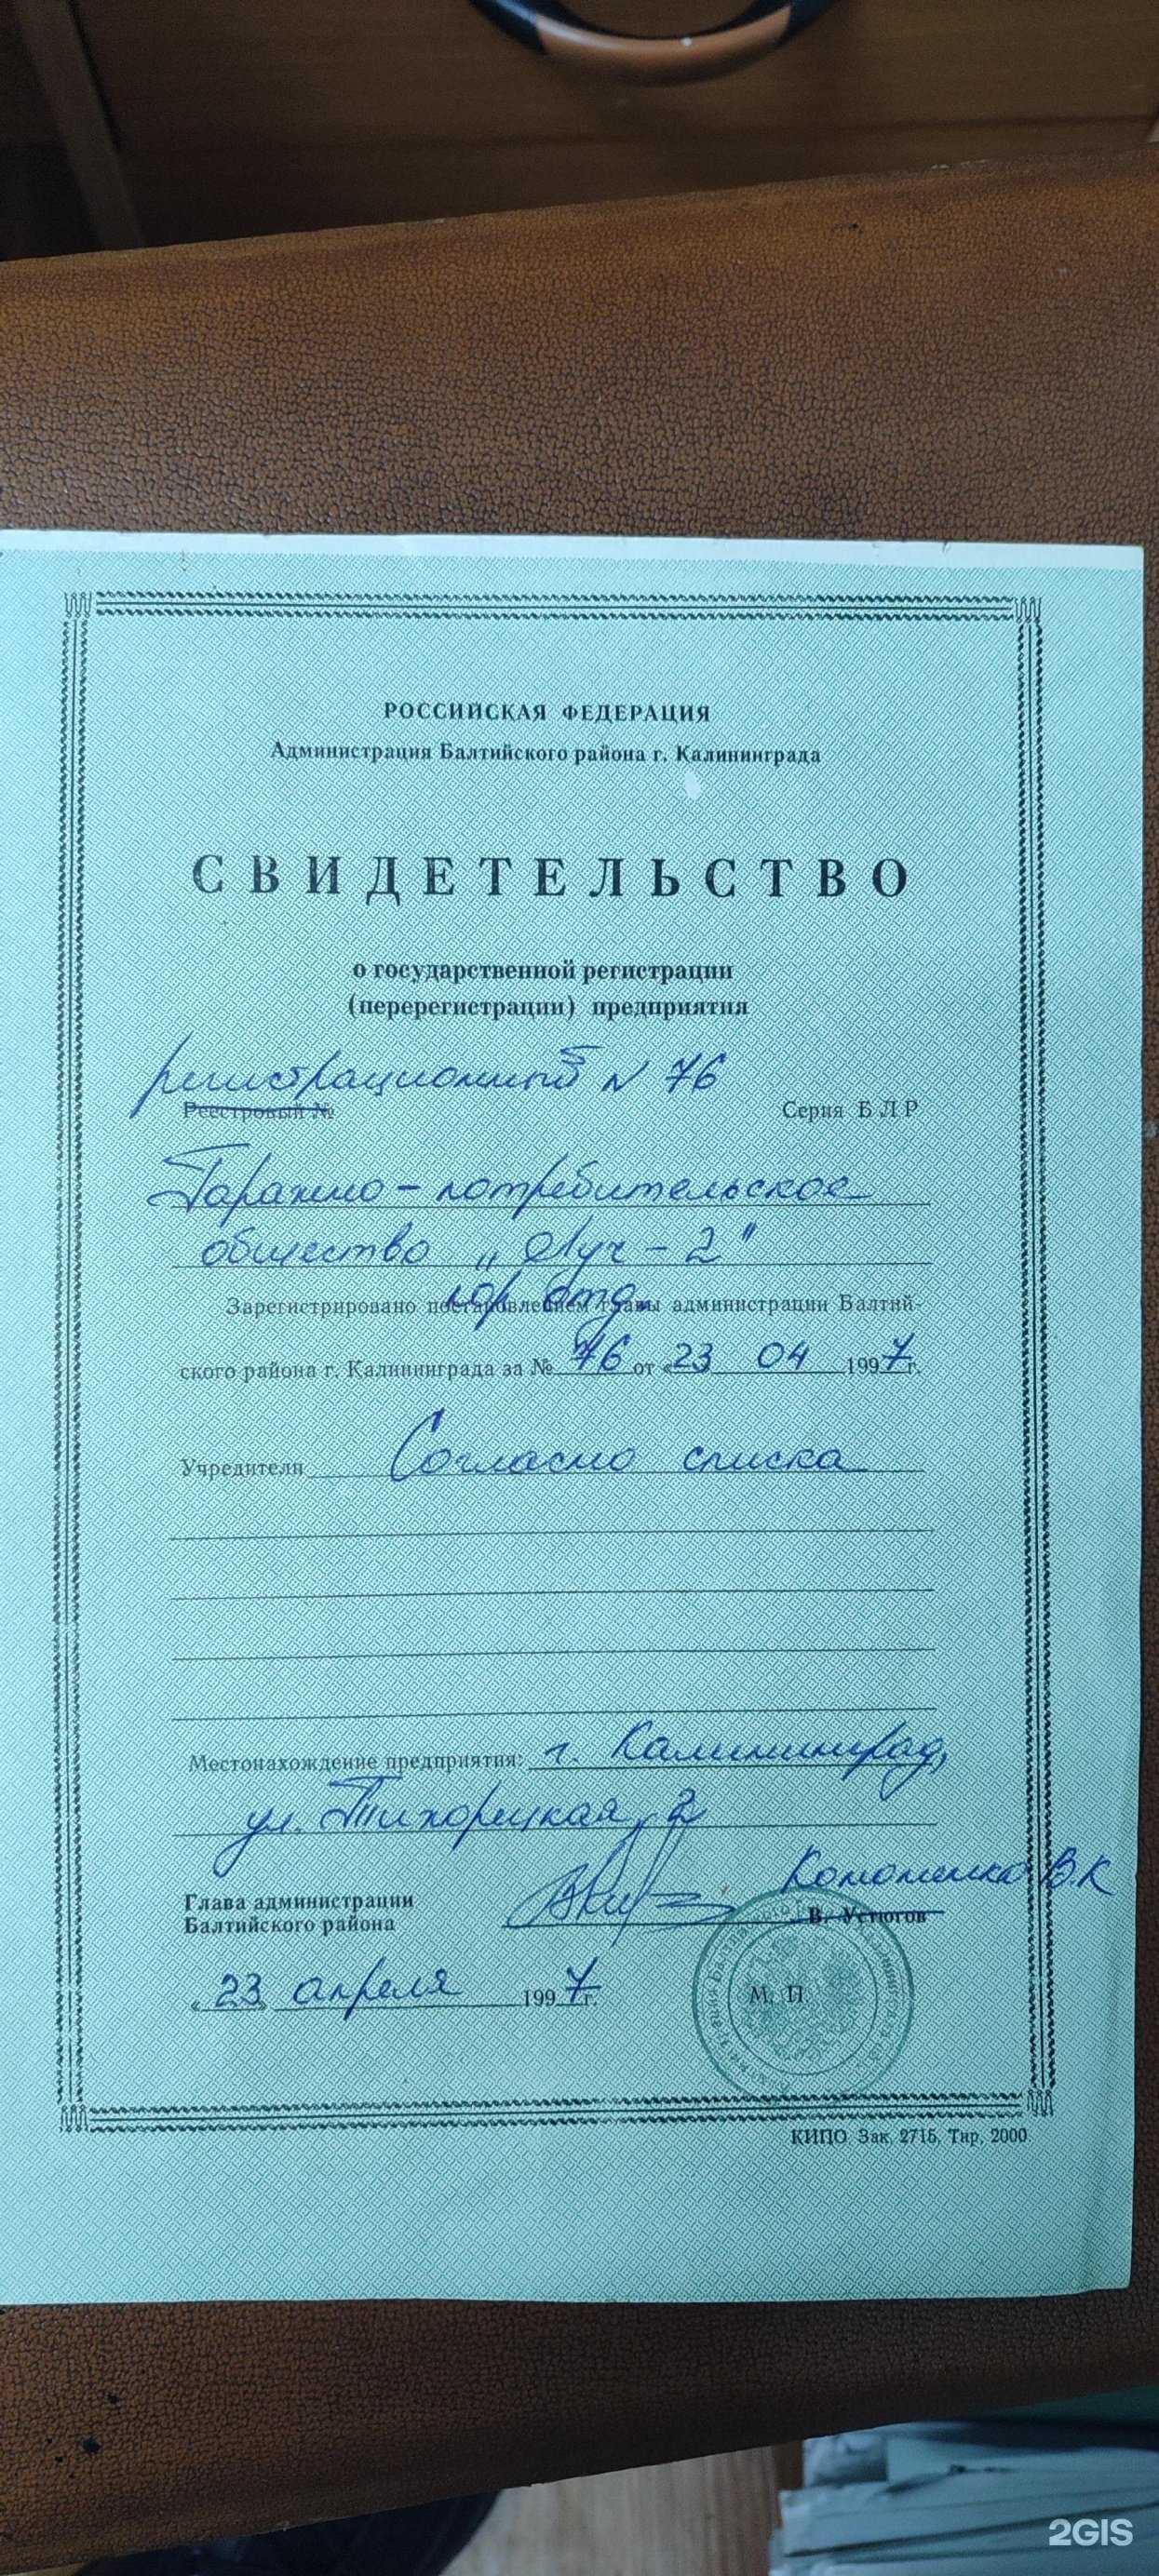 РОССИЙСКАЯ ФЕДЕРАЦИЯ
Администрация Балтийского района г. Калининграда
СВИДЕТЕЛЬСТВО
о государственной регистрации
(перерегистрации) предприятия
регистрационный N 76
Реестровый №
Серия БЛР
Гаражно-потребительское
общество „Луч-2"
юр. отд.
Зарегистрировано постановлением главы администрации Балтий-
ского района г. Калининграда за № 76 от «23 04 1997г.
Учредители Согласно списка
Местонахождение предприятия: г. Калининград,
ул. Тихорецкая, 2
Кононенко В.К
Глава администрации
Балтийского района
В. Устюгов
«23» апреля 1997г.
М. П
КИПО. Зак. 2715. Тир. 2000
2GIS